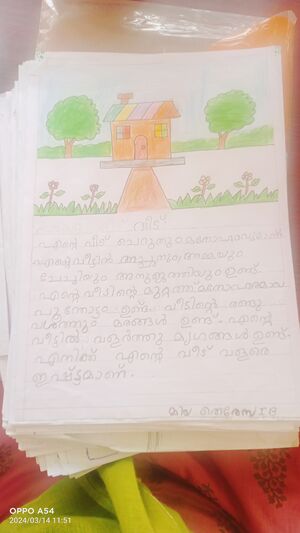 വീട്
എന്റെ വീട് ചെറുതും മനോഹരവുമാണ്
എന്റെ വീട്ടിൽ അച്ഛനും, അമ്മയും
ചേച്ചിയും അനുജത്തിയും ഉണ്ട്.
എന്റെ വീടിന്റെ മുറ്റത്ത് മനോഹരമായ
പൂന്തോട്ടം ഉണ്ട്. വീടിന്റെ രണ്ടു
വശത്തും മരങ്ങൾ ഉണ്ട്. എന്റെ
വീട്ടിൽ വളർത്തു മൃഗങ്ങൾ ഉണ്ട്.
എനിക്ക് എന്റെ വീട് വളരെ
ഇഷ്ട്ടമാണ്.
മിയ തെരേസ I B
OPPO A54
2024/03/14 11:51